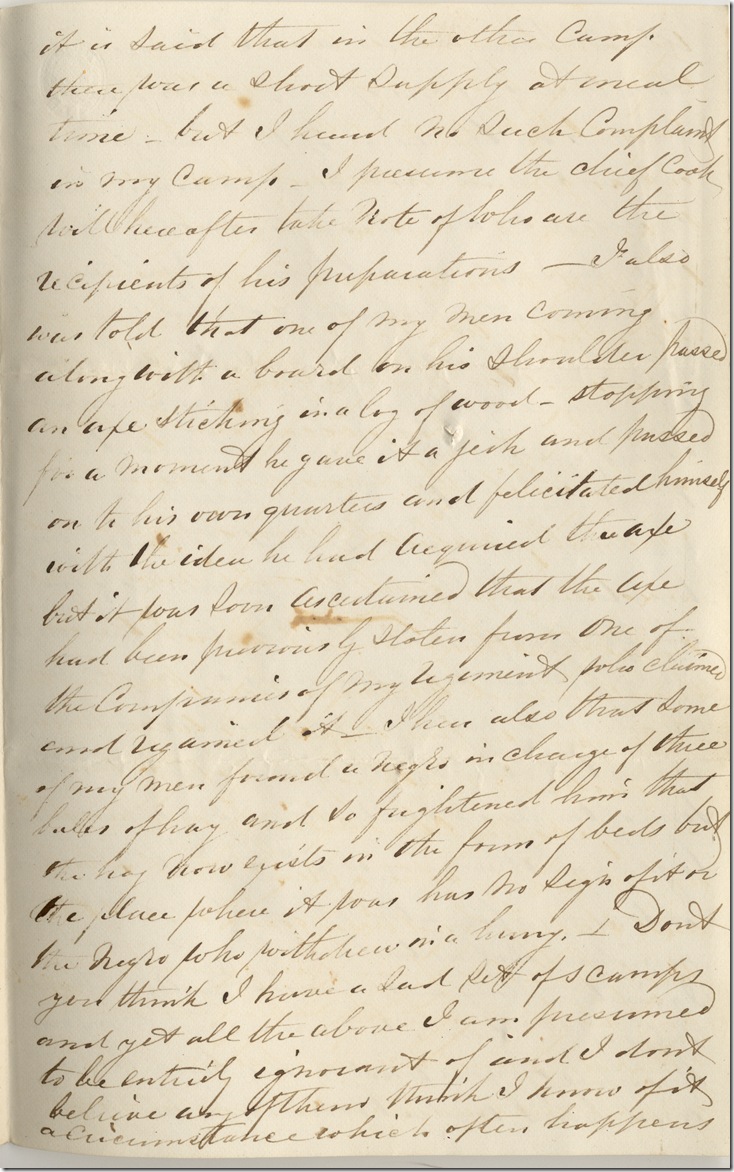 it is said that in the other Camp
there was a short supply at meal
time - but I heard no such Complaint
in my Camp - I presume the chief Cook
will hereafter take Note of who are the
recipients of his preparations - I also
was told that one of my men coming
along with a board on his shoulder passed
an axe sticking in a log of wood - stopping
for a moment he gave it a jerk and passed
on to his own quarters and felicitated himself
with the idea he had acquired the axe
but it was soon ascertained that the axe
had been previously stolen from one of
the Companies of my regiment who claimed
and regained it - I hear also that some
of my men found a Negro in charge of three
bales of hay and so frightened him that
the hay now exists in the form of beds but
the place where it was has no sign of it or
the Negro who withdrew in a hurry. - Dont
you think I have a sad set of scamps
and yet all the above I am presumed
to be entirely ignorant of and I dont
believe any of them think I know of it
a circumstance which often happens